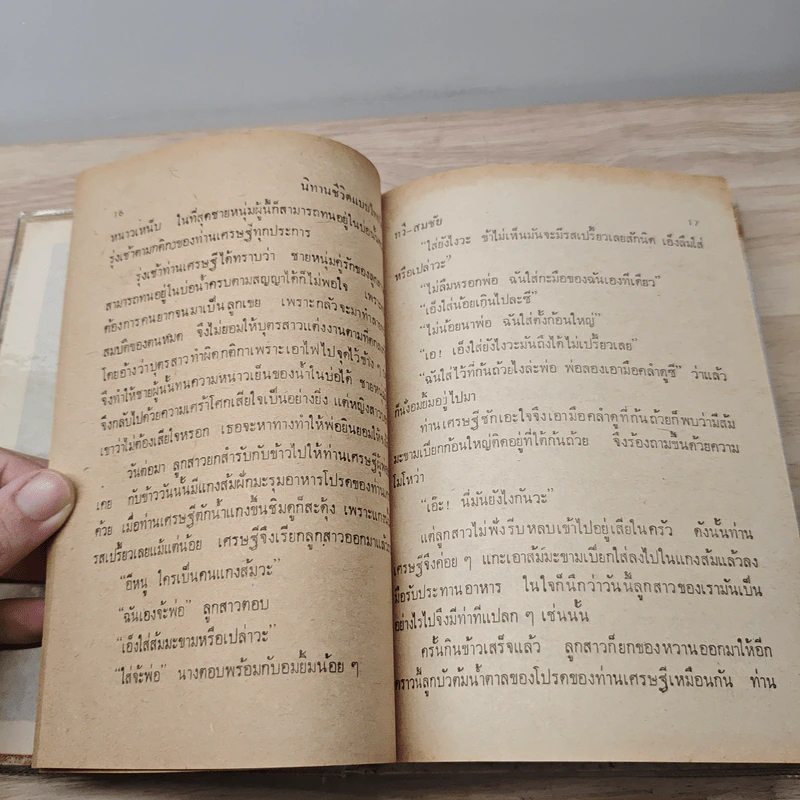 16
นิทานชีวิตแบบไทย
หนาวเหน็บ ในที่สุดชายหนุ่มผู้นี้ก็สามารถทนอยู่ในบ่อน้ำ
รุ่งเช้าตามกติกาของท่านเศรษฐีทุกประการ
รุ่งเช้าท่านเศรษฐีได้ทราบว่า ชายหนุ่มคู่รักของลูกสาว
สามารถทนอยู่ในบ่อน้ำครบตามสัญญาได้ก็ไม่พอใจ เพราะ
ต้องการคนยากจนมาเป็นลูกเขย เพราะกลัวจะมาทำลาย
สมบัติของตนหมด จึงไม่ยอมให้บุตรสาวแต่งงานตามที่ตกลง
โดยอ้างว่าบุตรสาวทำผิดกติกาเพราะเอาไฟไปจุดไว้ข้าง ๆ
จึงทำให้ชายผู้นั้นทนความหนาวเย็นของน้ำในบ่อได้ ชายหนุ่ม
จึงกลับไปด้วยความเศร้าโศกเสียใจเป็นอย่างยิ่ง แต่หญิงสาว
เขาว่าไม่ต้องเสียใจหรอก เธอจะหาทางทำให้พ่อยินยอมให้
วันต่อมา ลูกสาวยกสำรับกับข้าวไปให้ท่านเศรษฐีผู้
เคย กับข้าววันนั้นมีแกงส้มผักมะรุมอาหารโปรดของท่าน
ด้วย เมื่อท่านเศรษฐีตักน้ำแกงขึ้นชิมดูก็สะดุ้ง เพราะแกง
รสเปรี้ยวเลยแม้แต่น้อย เศรษฐีจึงเรียกลูกสาวออกมาแล้ว
“อีหนู ใครเป็นคนแกงส้มวะ”
“ฉันเองจ้ะพ่อ” ลูกสาวตอบ
“เอ็งใส่ส้มมะขามหรือเปล่าวะ”
“ใส่จ้ะพ่อ” นางตอบพร้อมกับอมยิ้มน้อย ๆ
ทวี-สมชัย
17
“ใส่ยังไงวะ ข้าไม่เห็นมันจะมีรสเปรี้ยวเลยสักนิด เอ็งลืมใส่
หรือเปล่าวะ”
“ไม่ลืมหรอกพ่อ ฉันใส่กะมือของฉันเองทีเดียว”
“เอ็งใส่น้อยเกินไปละซี”
“ไม่น้อยนาพ่อ ฉันใส่ตั้งก้อนใหญ่”
“เอ! เอ็งใส่ยังไงวะมันถึงได้ไม่เปรี้ยวเลย”
“ฉันใส่ไว้ที่ก้นถ้วยไงล่ะพ่อ พ่อลองเอามือคลำดูซี” ว่าแล้ว
ก็นั่งอมยิ้มอยู่ไปมา
ท่านเศรษฐีชักเอะใจจึงเอามือคลำดูที่ก้นถ้วยก็พบว่ามีส้ม
มะขามเปียกก้อนใหญ่ติดอยู่ที่ใต้ก้นถ้วย จึงร้องถามขึ้นด้วยความ
โมโหว่า
“เอ๊ะ! นี่มันยังไงกันวะ”
แต่ลูกสาวไม่ฟังรีบหลบเข้าไปอยู่เสียในครัว ดังนั้นท่าน
เศรษฐีจึงค่อย ๆ แกะเอาส้มมะขามเปียกใส่ลงไปในแกงส้มแล้วลง
มือรับประทานอาหาร ในใจก็นึกว่าวันนี้ลูกสาวของเรามันเป็น
อย่างไรไปจึงมีท่าทีแปลก ๆ เช่นนั้น
ครั้นกินข้าวเสร็จแล้ว ลูกสาวก็ยกของหวานออกมาให้อีก
คราวนี้ลูกบัวต้มน้ำตาลของโปรดของท่านเศรษฐีเหมือนกัน ท่าน